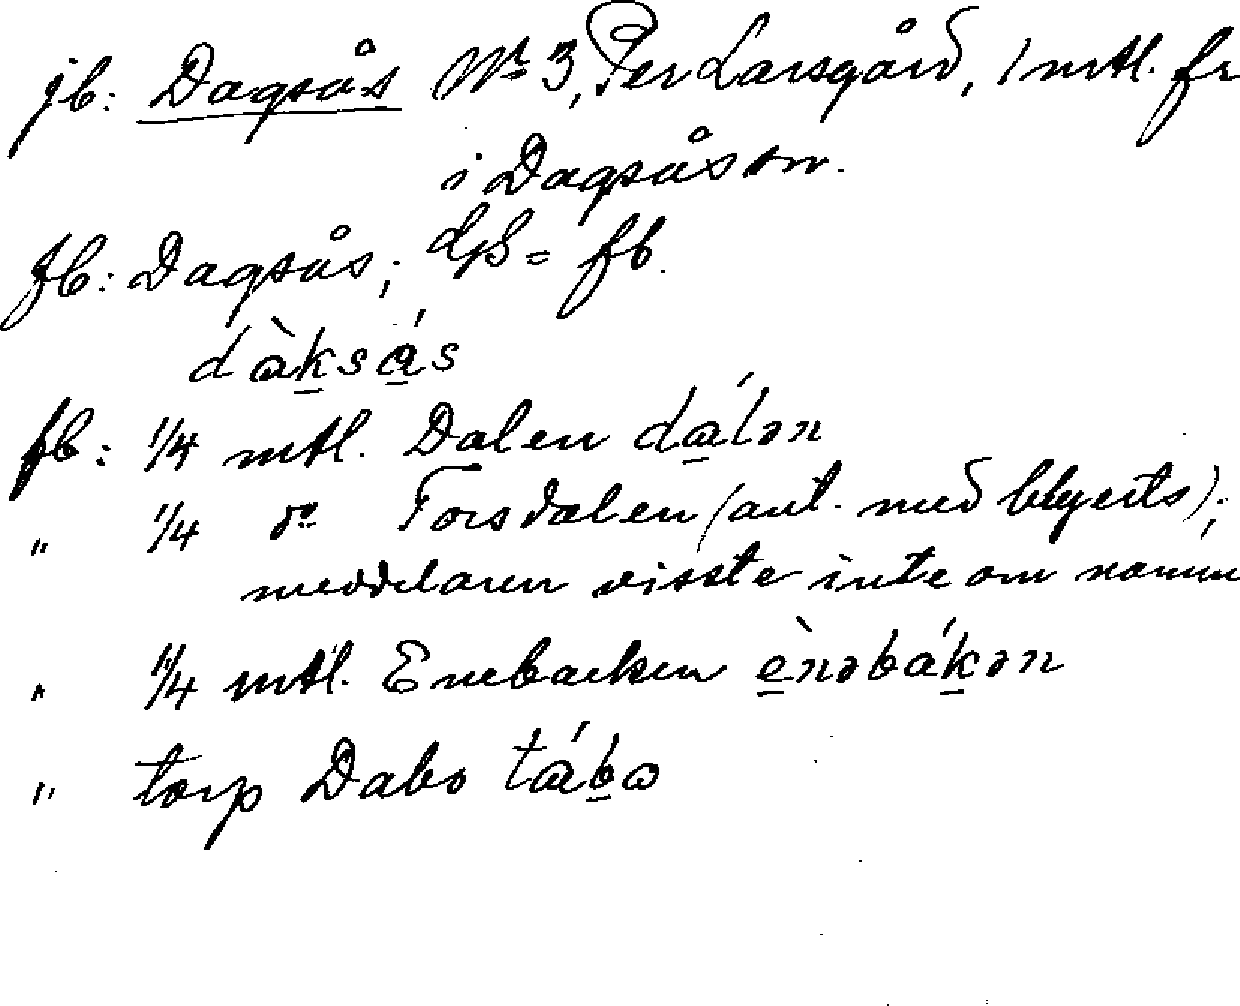 jb: Dagsås Nr 3, Per Larsgård, 1 mtl. fr
i Dagsås sn.
fb: Dagsås; = fb.
dàksás
fb: 1/4 mtl. Dalen dálən
" 1/4 do Torsdalen (ant. med blyerts);
meddelaren visste inte om namn
" 1/4 mtl. Enebacken ènəbákən
" torp Dabo tábɷ